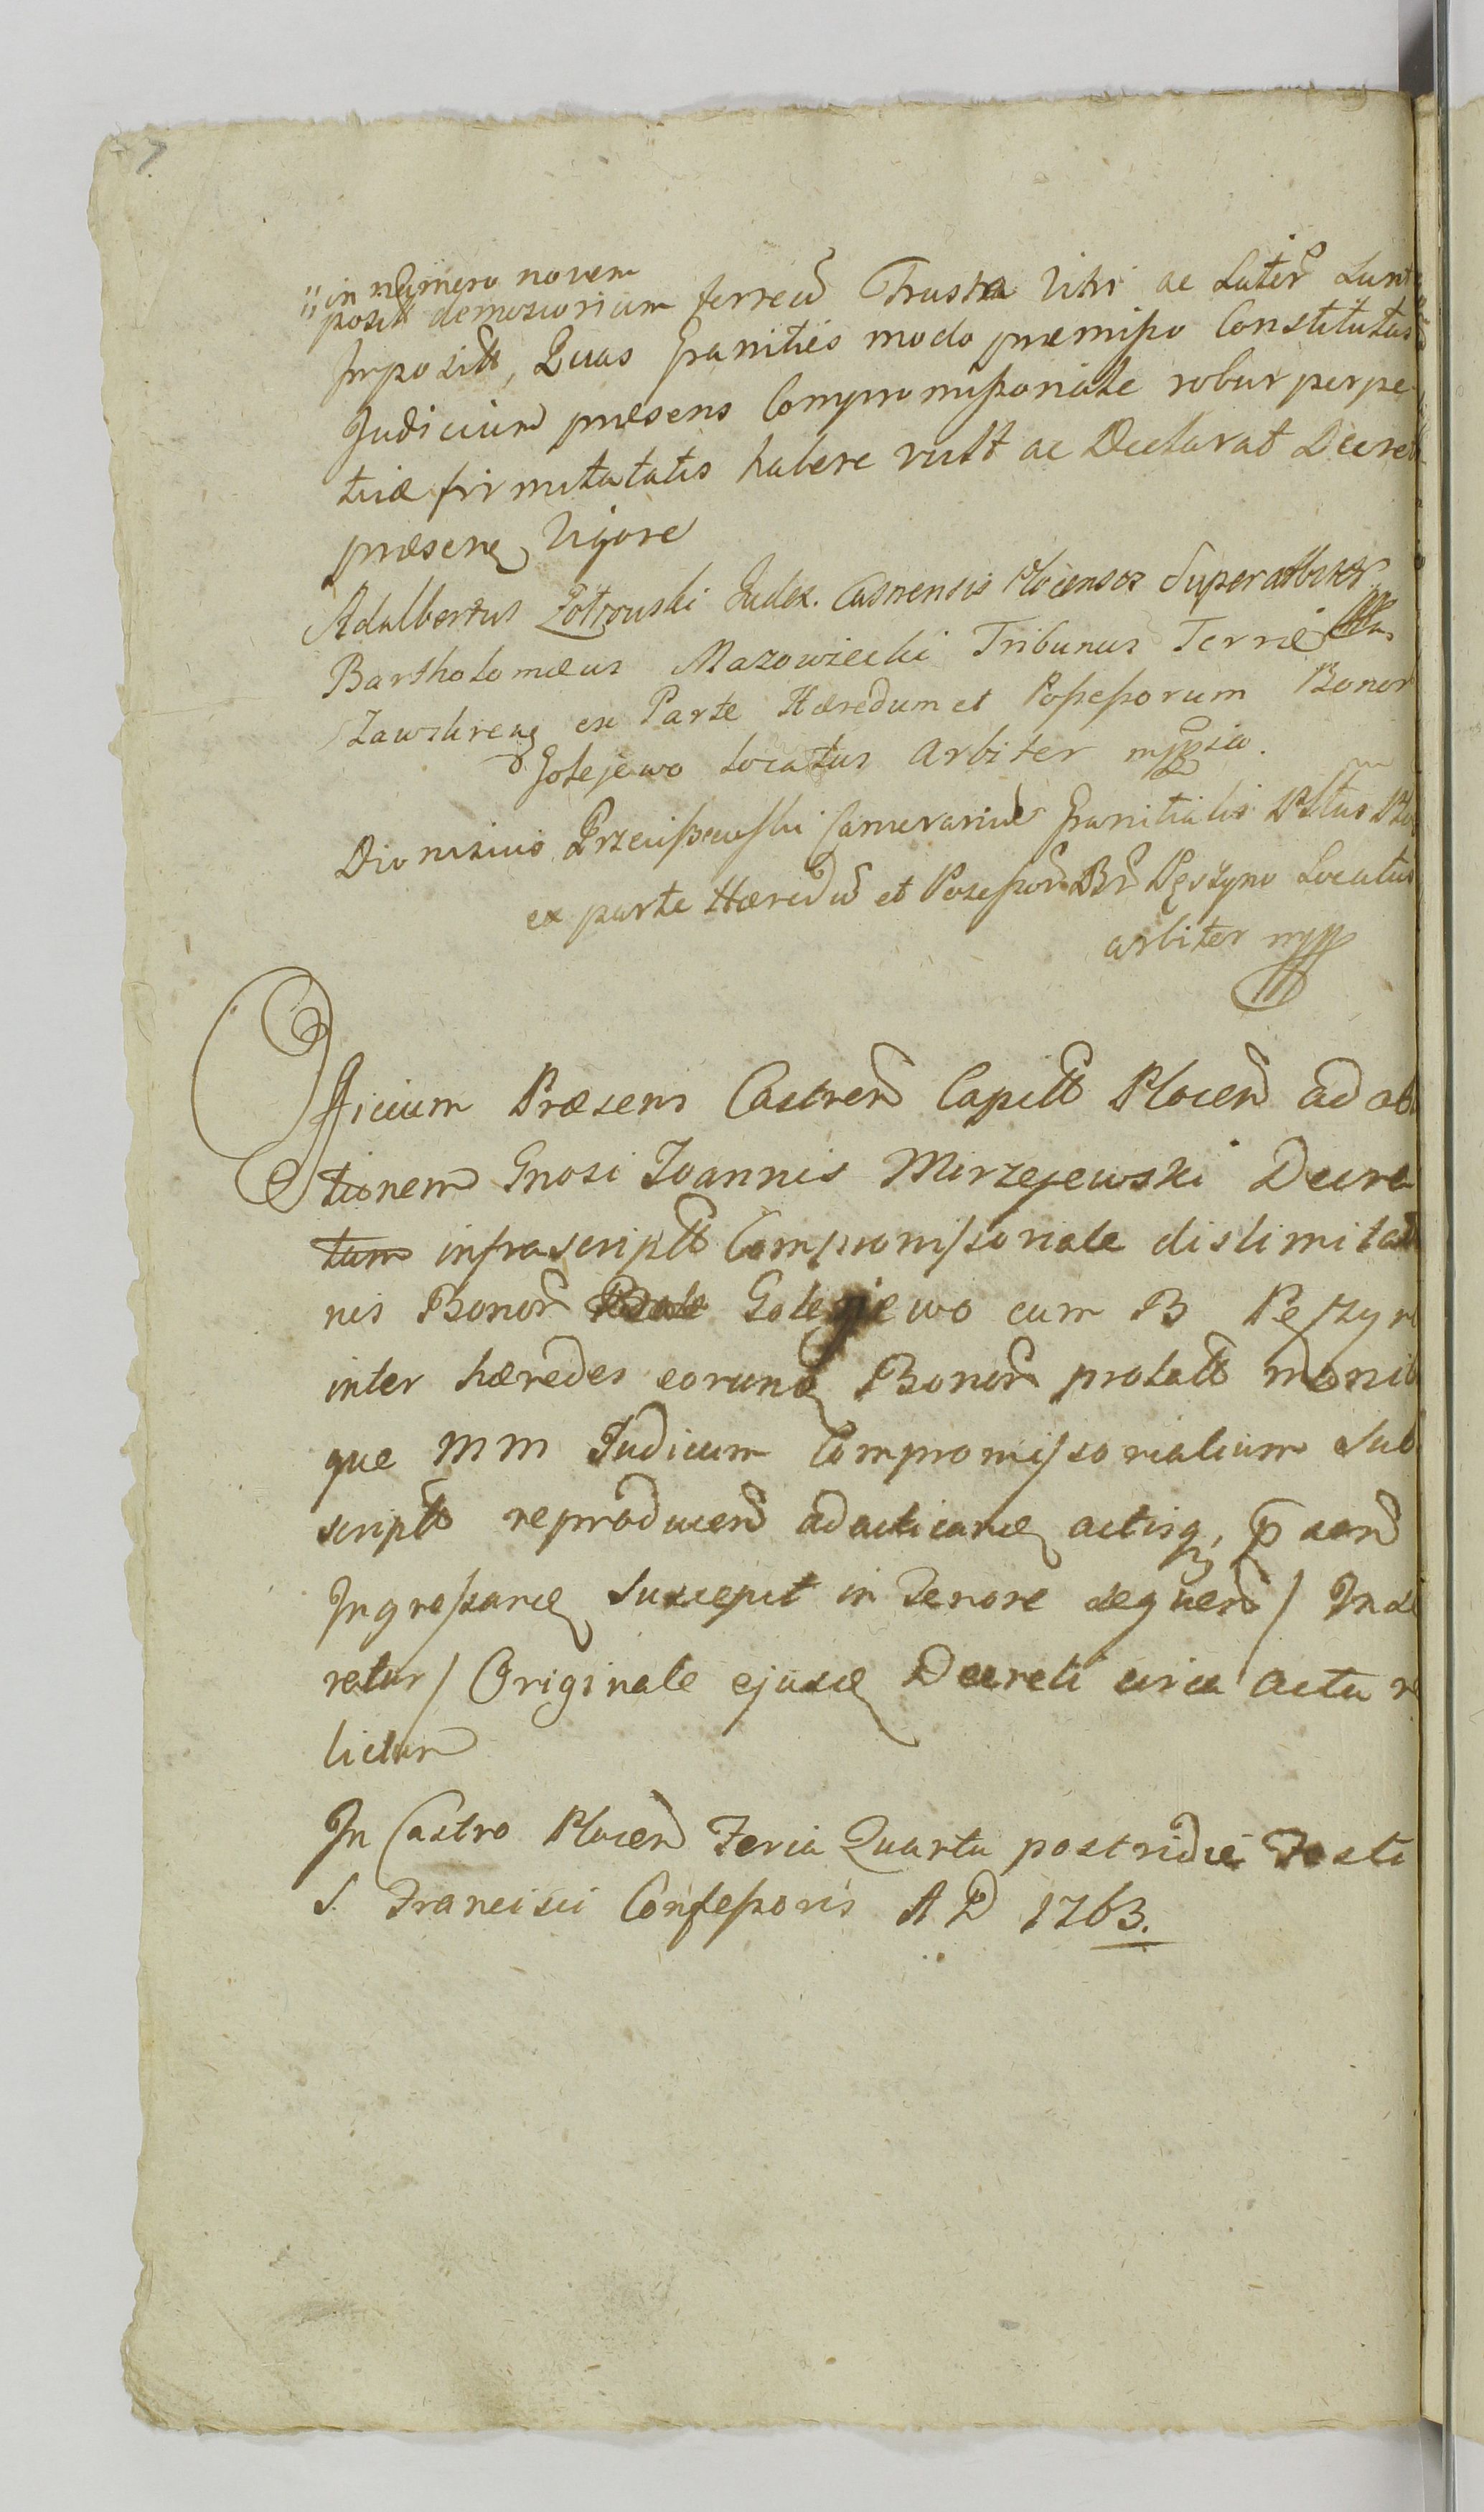 7
in numero novem
posit demosiorium ferreu Frusta Vitri ac Later Sunt
Imposit, Quas Granities modo præmisso Constitutas
Judicium præsens Compromissoriale robur perpe
tuæ firmitatis habere vult ac Declarat Decret
præsen Vigore
Adalbertus Zotrowski Judex. Castrensis Plocensis Superarbiter
Bartholomæus Mazowiecki Tribunus Terræ
Zawskren ex Parte Hæredum et Possessorum Bonor
Golejewo locatus Arbiter mppia.
Dionisius Przeciszewski Camerarius Granitialis Pltus Plo
ex parte Hæredu et Possessor Br Pęszyno Locatus
arbiter mpp
Officium Præsens Castren Capitt Plocen ad ob
tionem Gnosi Joannis Mirzejewski Decre
tum infrascriptt Compromissoriale dislimitao
nis Bonor Golejewo cum B Peszyn
inter hæredes eorund Bonor prolatt manib
que MM Judicum Compromissorialium Sub
scriptt reproducen ad acticand actisq, p sen
Ingrossand Suscepit in Tenore sequen / Inse
retur / Originale ejusd Decreti circa Acta re
lictum
In Castro Plocen Feria Quarta postridie Festi
S. Francisci Confessoris A D 1763.